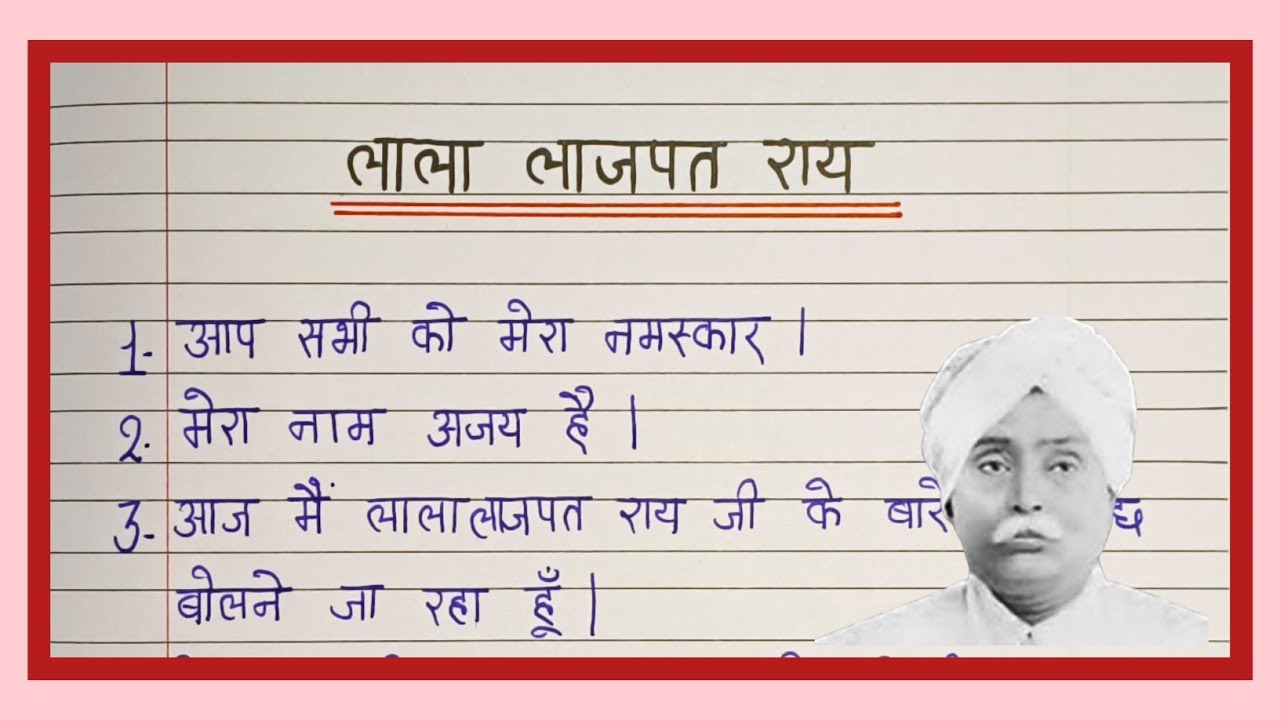 लाला लाजपत राय
1. आप सभी को मेरा नमस्कार।
2. मेरा नाम अजय है।
3. आज मैं लाला लाजपत राय जी के बारे
बोलने जा रहा हूँ।